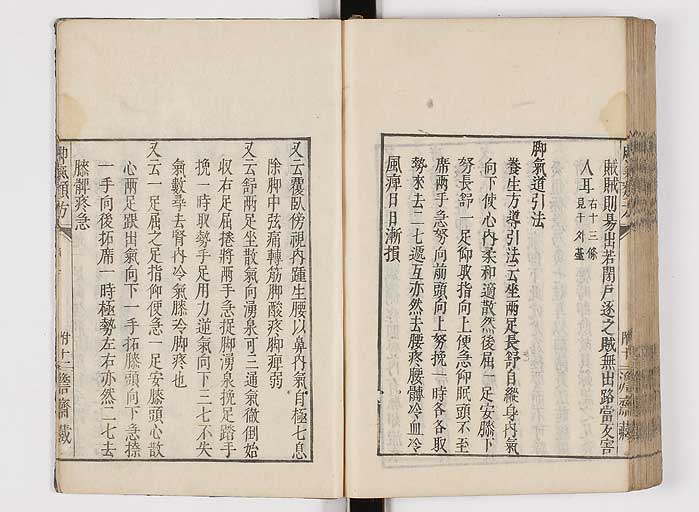 賊賊則易出若閉戶逐之賊無出路當反害
人耳右十三條
見千外臺
脚氣道引法
養生方導引法云坐兩足長舒自縱身內氣
向下使心內柔和適散然後屈一足安膝下
努長舒一足仰取指向上便急仰眠頭不至
席兩手急努向前頭向上努挽一時各各取
勢來去二七遞互亦然去腰疼腰髀冷血冷
風痺日日漸損
又云覆臥傍視內踵生腰以鼻內氣自極七息
除脚中弦痛轉筋脚酸疼脚痺弱
又云舒兩足坐散氣向湧泉可三通氣徹倒始
收右足屈捲將兩手急捉脚湧泉挽足踏手
挽一時取勢手足用力逆氣向下三七不失
氣數尋去腎內冷氣膝冷脚疼也
又云一足屈之足指仰便急一足安膝頭心散
心兩足跟出氣向下一手拓膝頭向下急捺
一手向後拓席一時極勢左右亦然二七去
膝髀疼急
附十二